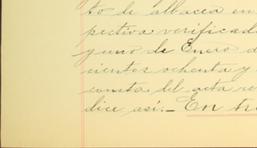 to de albacea en
pectiva verificada
guno de Enero d
cientos ochenta y
consta del acta re
dice así:- En tre